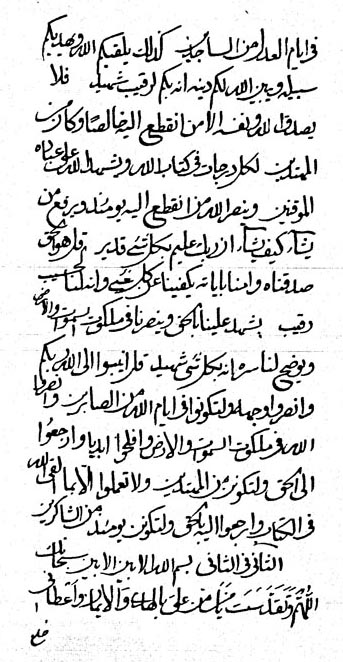 فى ايام العدل من الساجدين كذلك يلقيكم الله ويهديكم
سبيله ويبين الله لكم دينه انه بكم لرقيب شهيد فلا
يصدقوا لله وبعد الا من انقطع اليه خالصا وكان من
المهتدين لكل درجات فى كتاب الله ويشهد الله على عباده
الموقنين وينصر الله من انقطع اليه يومئذ ويرفع من
يشاء كيف يشاء ان ربك عليم بكل شئ قدير قل هو الحق
صدقناه وامنا باياته يكفينا عن كل شئ وانه لنا لحسيب
رقيب يشهد علينا بالحق وينصرنا فى ملكوت السموات والارض
ويوضح لنا سره انه بكل شئ شهيد قل انيبوا الى الله ربكم
وانصروا وجهه ولتكونوا فى ايام الله من الصابرين وانصروا
الله فى ملكوت السموت والارض وافلحوا ابديا وارجعوا
الى الحق ولتكونن من المهتدين ولا تعملوا الا ما الله
فى الكتاب وارجعوا اليه بالحق ولتكونن يومئذ من الشاكرين
الثانى فى الثانى بسم الله الابين الابين سبحانك
اللهم وتقدست يا من على بالبهاء والايات واعطانى